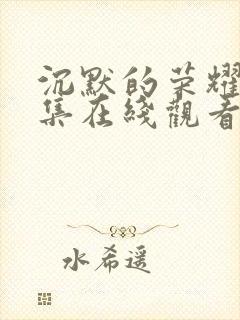 沉默的荣耀
集在綫觀看
水希遥